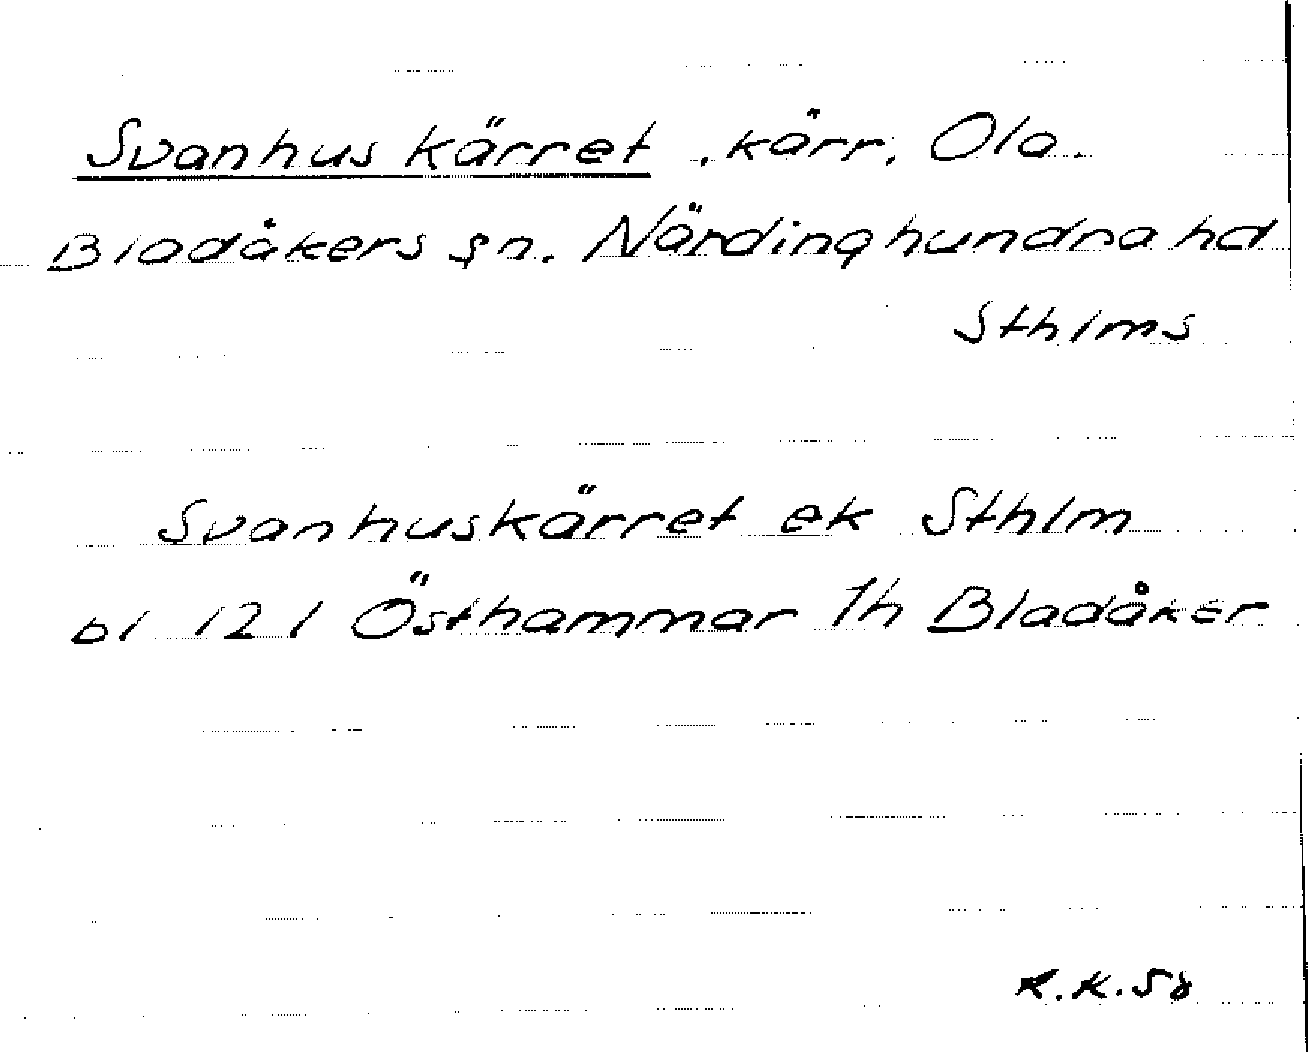 Svanhuskärret, kärr, Ola.
Bladåkers sn. Närdinghundra hd
Sthlms
Svanhuskärret ek Sthlm
bl 121 Östhammar Th Bladåker
R.K. 58